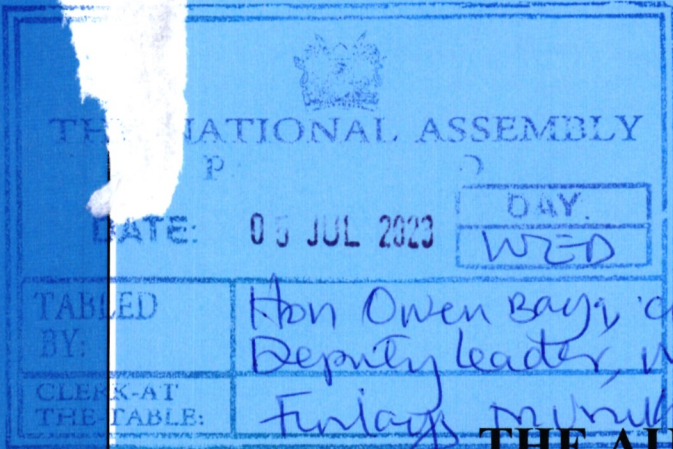 THE NATIONAL ASSEMBLY
P
DATE: 05 JUL 2023
DAY.
WED
TABLED BY:
Hon Owen Baya,
Deputy Leader,
CLERK-AT THE-TABLE:
THE AU